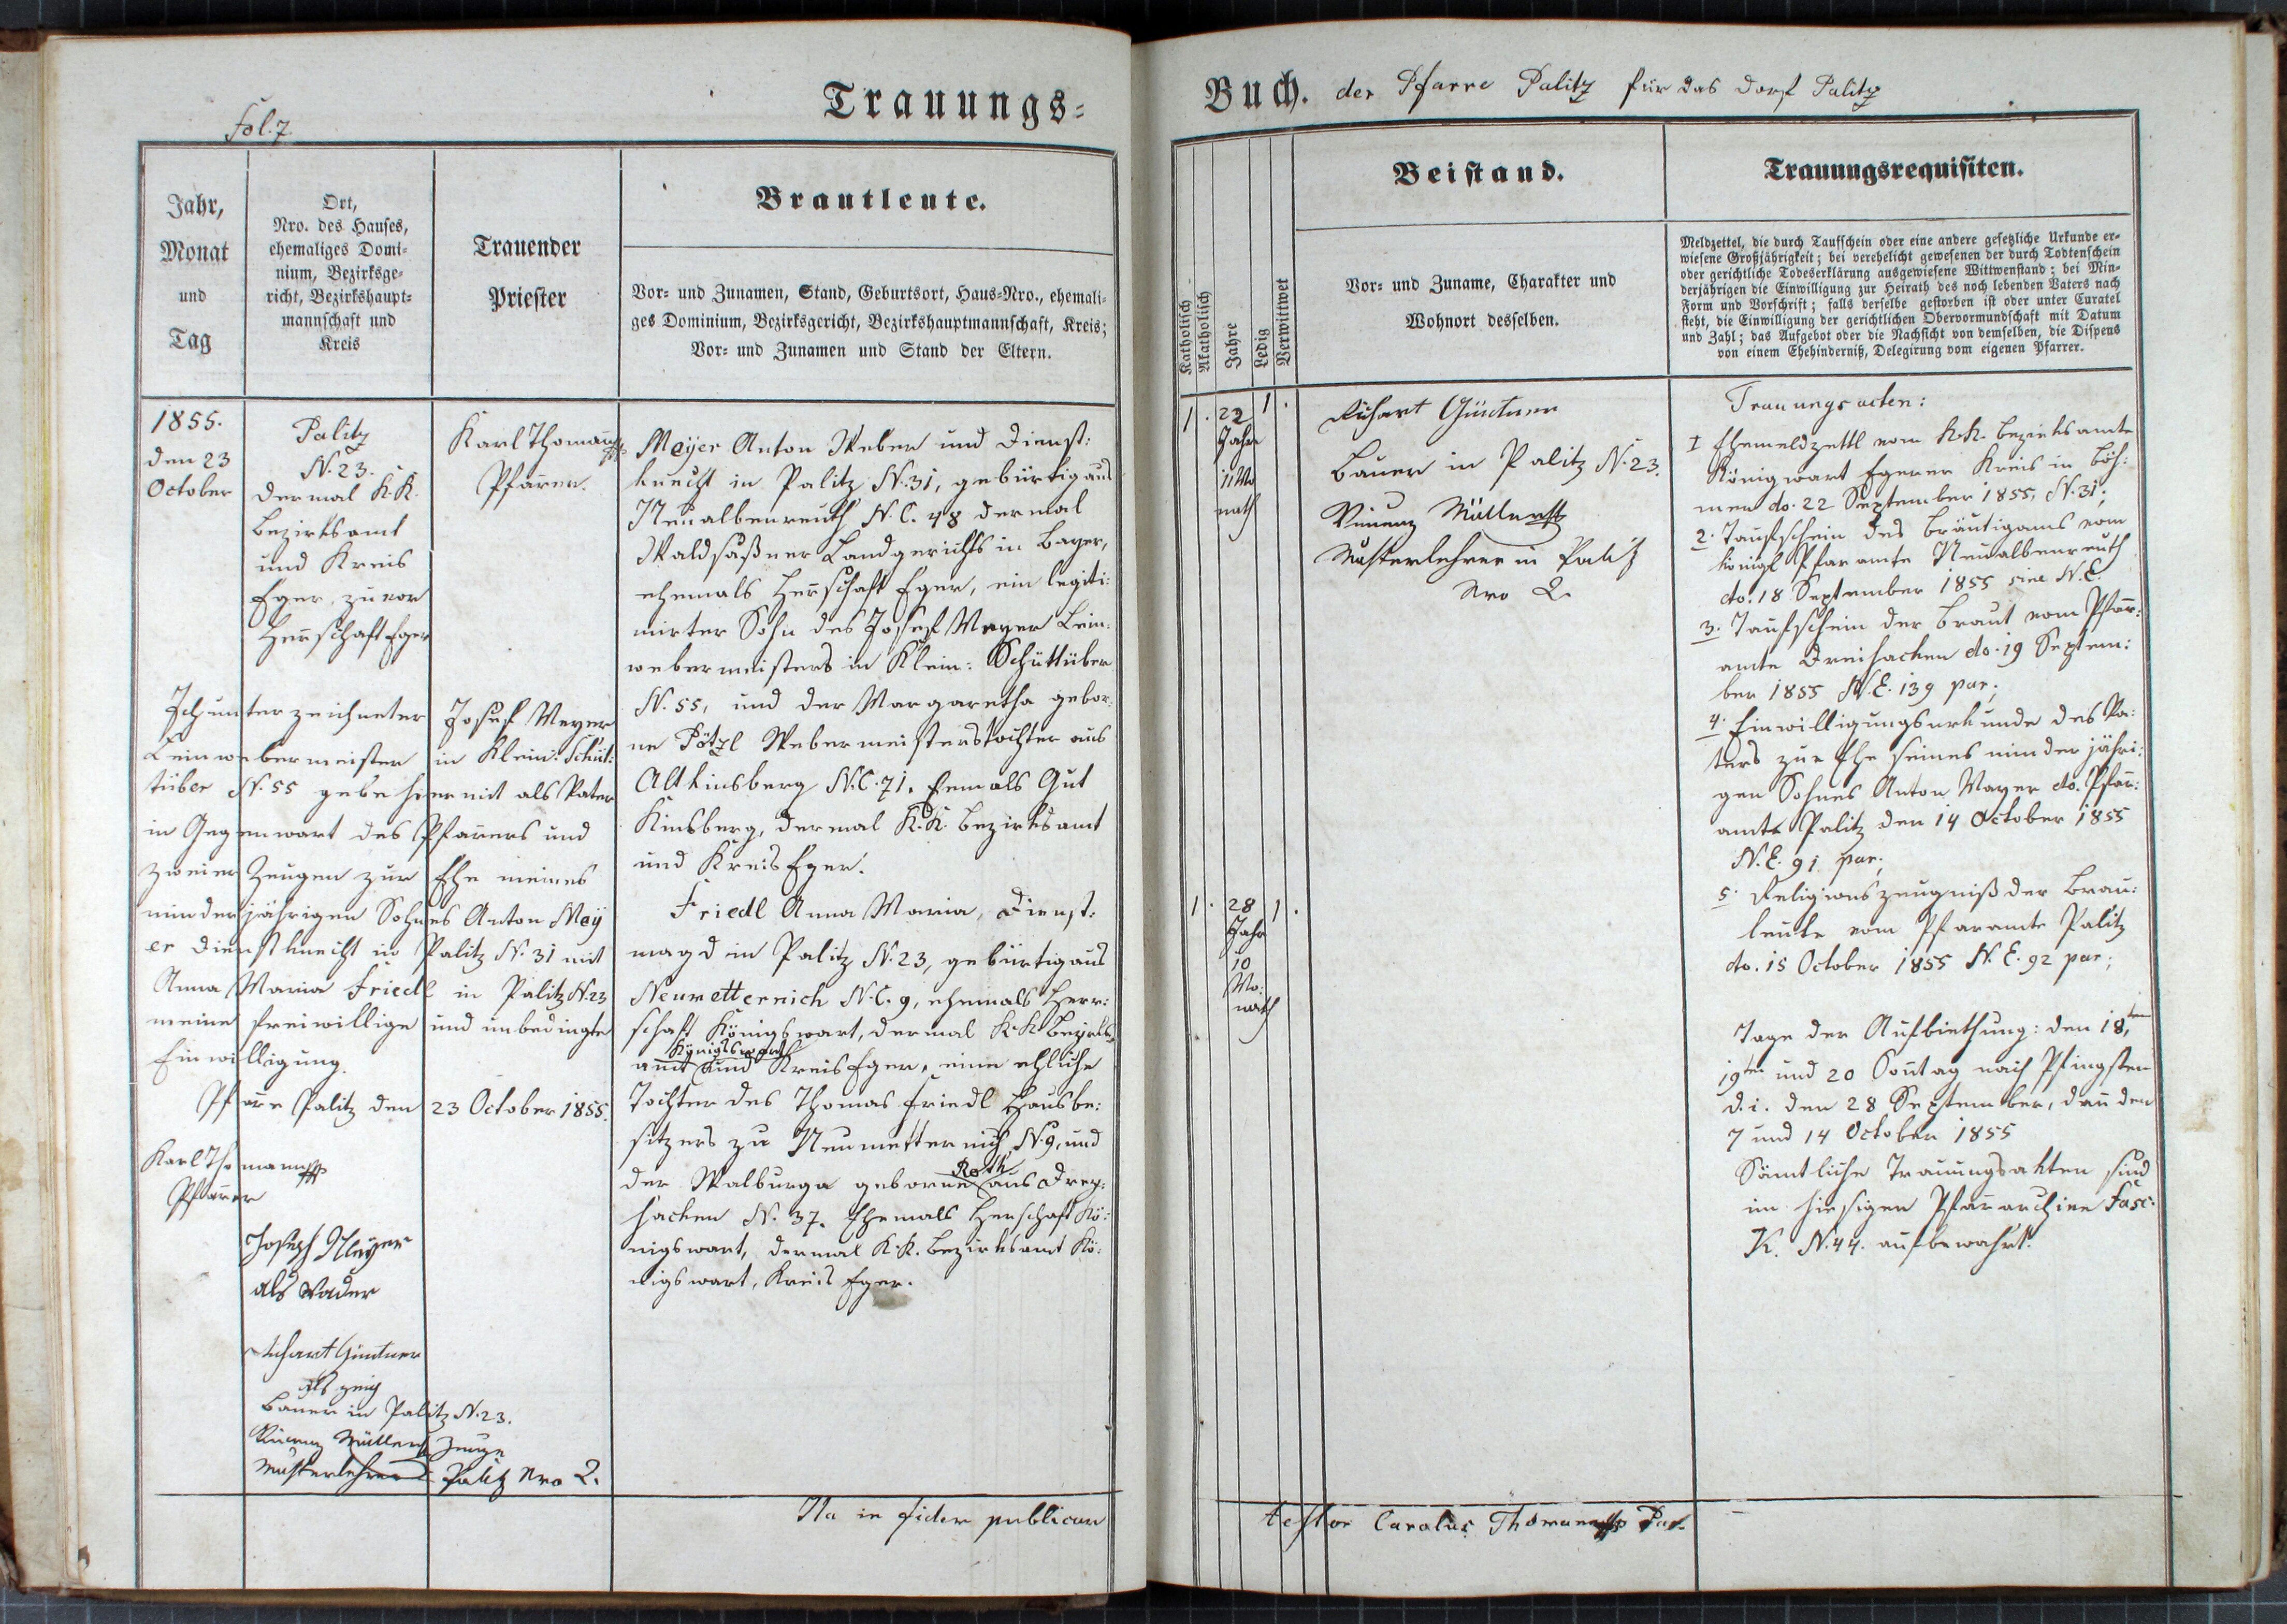 Fol. 7
Trauungs-
Jahr,
Monat
und
Tag
Ort,
Nro. des Hauses,
ehemaliges Domi-
nium, Bezirksge-
richt, Bezirkshaupt-
mannschaft und
Kreis
Trauender
Priester
Brautleute.
Vor- und Zunamen, Stand, Geburtsort, Haus-Nro., ehemali-
ges Dominium, Bezirksgericht, Bezirkshauptmannschaft, Kreis;
Vor- und Zunamen und Stand der Eltern.
1855.
den 23
October
Palitz
N. 23.
dermal K.K.
Bezirksamt
und Kreis
Eger, zuvor
Herrschaft Eger
Karl Thomann
Pfarrer.
Meyer Anton Weber und Dienst:
knecht in Palitz N. 31, gebürtig aus
Neualbenreuth N.C. 48 dermal
Waldsaßner Landgerichts in Bayer,
ehemals Herrschaft Eger, ein legiti:
mirter Sohn des Josef Mayer Lein:
webermeisters in Klein: Schüttüber
N. 55, und der Margaretha gebor:
ne Pötzl Webermeisterstochter aus
Altkinsberg N.C. 71. Ehemals Gut
Kinsberg, dermal K.K. Bezirksamt
und Kreis Eger.
Friedl Anna Maria, Dienst:
magd in Palitz N. 23, gebürtig aus
Neumetternich N.C. 9, ehemals Herr:
schaft Königswart, dermal K.K. Bezirks
Königswart
amt und Kreis Eger, eine ehliche
Tochter des Thomas Friedl Hausbe:
sitzers zu Neumetternich N. 9, und
Roth
der Walburga geborne aus Drey:
hacken N. 37. Ehemals Herschaft Kö:
nigswart, dermal K.K. Bezirksamt Kö:
nigswart, Kreis Eger.
Ich unterzeichneter Josef Meyer
Leinwebermeister in Klein: Schüt:
tüber N. 55 gebe hiermit als Vater
in Gegenwart des Pfarrers und
zweier Zeugen zur Ehe meines
minderjährigen Sohnes Anton Mey
er Dienstknecht in Palitz N. 31 mit
Anna Maria Friedl in Palitz N. 23
meine freiwillige und unbedingte
Einwilligung.
Pfarre Palitz den 23 October 1855.
Karl Thomann
Pfarrer
Joseph Mayer
als Vader
Güntner
als zeig
Bauer in Palitz N. 23.
Müller Zeuge
Musterlehrer Palitz Nro 2.
Ita in fidem publicam
Buch. der Pfarre Palitz für das Dorf Palitz
Katholisch
Akatholisch
Jahre
Ledig
Verwittwet
Beistand.
Vor- und Zuname, Charakter und
Wohnort desselben.
Trauungsrequisiten.
Meldzettel, die durch Taufschein oder eine andere gesetzliche Urkunde er-
wiesene Großjährigkeit; bei verehelicht gewesenen der durch Todtenschein
oder gerichtliche Todeserklärung ausgewiesene Wittwenstand; bei Min-
derjährigen die Einwilligung zur Heirath des noch lebenden Vaters nach
Form und Vorschrift; falls derselbe gestorben ist oder unter Curatel
steht, die Einwilligung der gerichtlichen Obervormundschaft mit Datum
und Zahl; das Aufgebot oder die Nachsicht von demselben, die Dispens
von einem Ehehinderniß, Delegirung vom eigenen Pfarrer.
1 . 22 1 .
Jahre
11 Mo
nath
Güntner
Bauer in Palitz N. 23.
Müller
Musterlehrer in Palitz
Nro 2.
1 . 28 1 .
Jahr
10
Mo:
nath
Trauungsacten:
1 Ehemeldzettl vom K.K. Bezirksamte
Königwart Egerer Kreis in Böh:
men do. 22 September 1855, N. 31;
2. Taufschein des Bräutigams vom
königl Pfaramte Neualbenreuth
do. 18 September 1855 sine N.E.
3. Taufschein der Braut vom Pfarr:
amte Dreihacken do. 19 Septem:
ber 1855 N.E. 139 par;
4. Einwilligungsurkunde des Va:
ters zur Ehe seines minderjähri:
gen Sohnes Anton Mayer do. Pfarr:
amte Palitz den 14 October 1855
N.E. 91 par;
5. Religionszeugniß der Brau:
leute vom Pfaramte Palitz
do. 15 October 1855 N.E. 92 par;
Tage der Aufbiethung: den 18ten,
19ten und 20 Sontag nach Pfingsten
d.i. den 28 September, dann den
7 und 14 October 1855
Sämtliche Trauungsakten sind
im hiesigen Pfararchive Fasc:
K. N. 44. aufbewahrt.
testor Carolus Thomann Par.